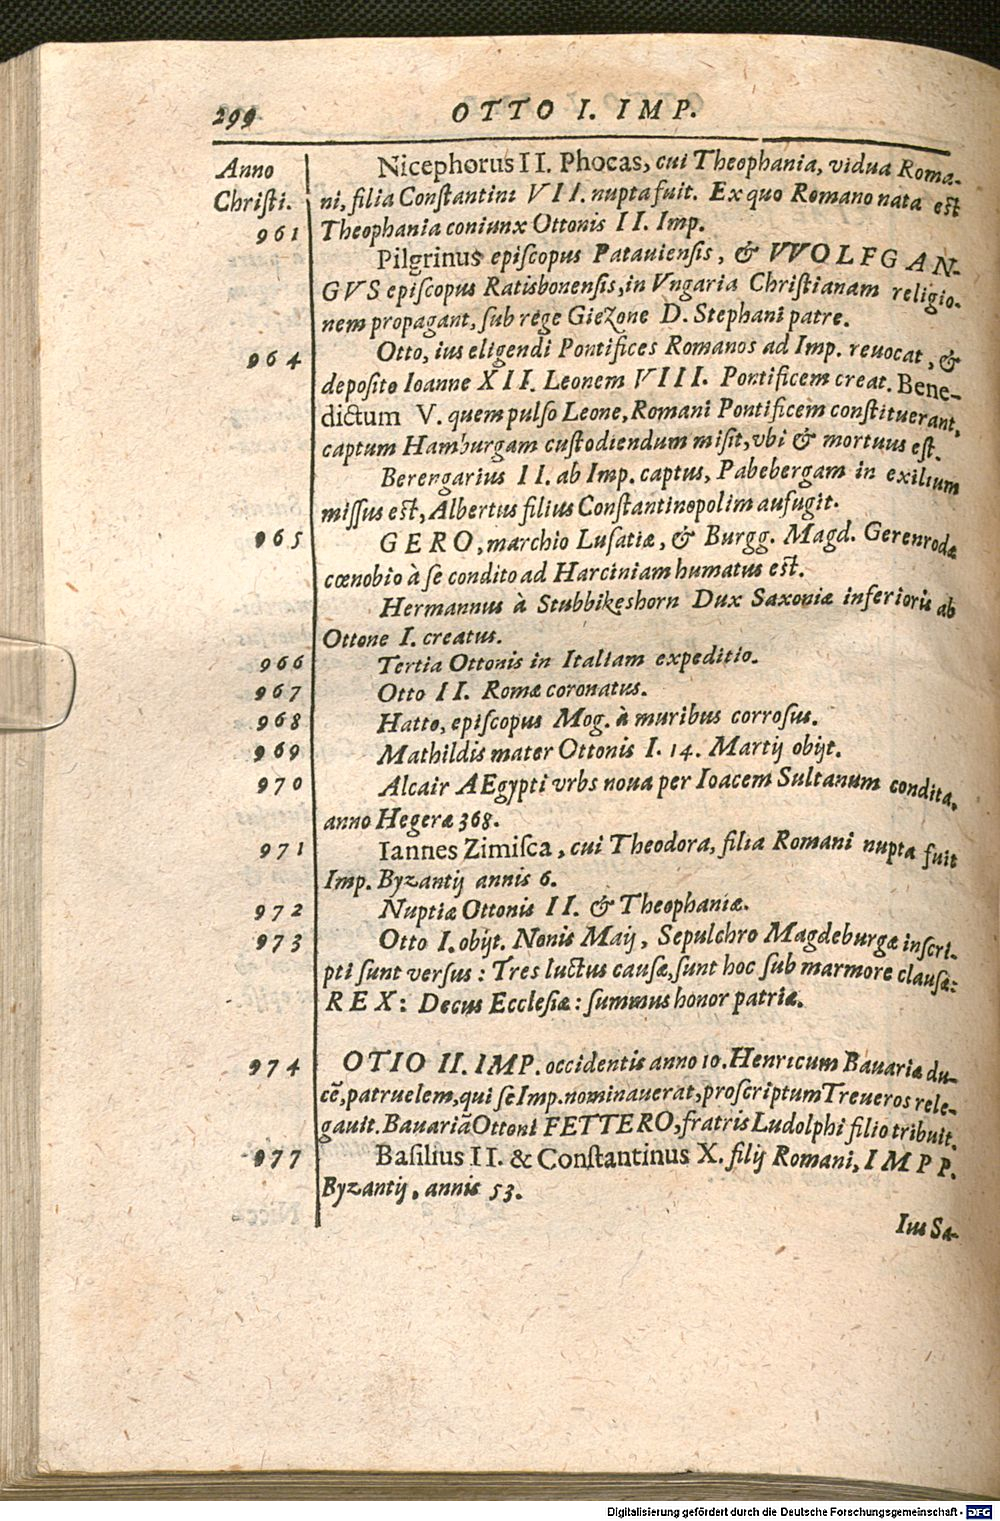 299 OTTO I. IMP.
Anno Nicephorus II. Phocas, cui Theophania, vidua Roma-
Christi. ni, filia Constantini VII. nupta fuit. Ex quo Romano nata est
961 Theophania coniunx Ottonis II. Imp.
Pilgrinus episcopus Patauiensis, & VVOLFGAN-
GVS episcopus Ratisbonensis, in Vngaria Christianam religio-
nem propagant, sub rege Giezone D. Stephani patre.
964 Otto, ius eligendi Pontifices Romanos ad Imp. reuocat, &
deposito Ioanne XII. Leonem VIII. Pontificem creat. Bene-
dictum V. quem pulso Leone, Romani Pontificem constituerant,
captum Hamburgam custodiendum misit, vbi & mortuus est.
Berengarius II. ab Imp. captus, Pabebergam in exilium
missus est, Albertus filius Constantinopolim aufugit.
965 GERO, marchio Lusatiæ, & Burgg. Magd. Gerenrodæ
cœnobio à se condito ad Harciniam humatus est.
Hermannus à Stubbikeshorn Dux Saxoniæ inferioris ab
Ottone I. creatus.
966 Tertia Ottonis in Italiam expeditio.
967 Otto II. Romæ coronatus.
968 Hatto, episcopus Mog. à muribus corrosus.
969 Mathildis mater Ottonis I. 14. Martij obijt.
970 Alcair AEgypti vrbs noua per Ioacem Sultanum condita,
anno Hegeræ 368.
971 Iannes Zimisca, cui Theodora, filia Romani nupta fuit
Imp. Byzantij annis 6.
972 Nuptiæ Ottonis II. & Theophaniæ.
973 Otto I. obijt. Nonis Maij, Sepulchro Magdeburgæ inscri-
pti sunt versus: Tres luctus causæ, sunt hoc sub marmore clausæ:
REX: Decus Ecclesiæ: summus honor patriæ.
974 OTIO II. IMP. occidentis anno 10. Henricum Bauariæ du-
cẽ, patruelem, qui se Imp. nominauerat, proscriptum Treueros rele-
gauit. Bauariã Ottoni FETTERO, fratris Ludolphi filio tribuit.
977 Basilius II. & Constantinus X. filij Romani, IMPP.
Byzantij, annis 53.
Ius Sa-
Digitalisierung gefördert durch die Deutsche Forschungsgemeinschaft - DFG